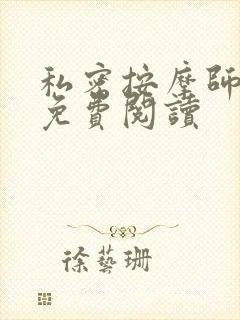 私密按摩師
免費閱讀
徐藝珊